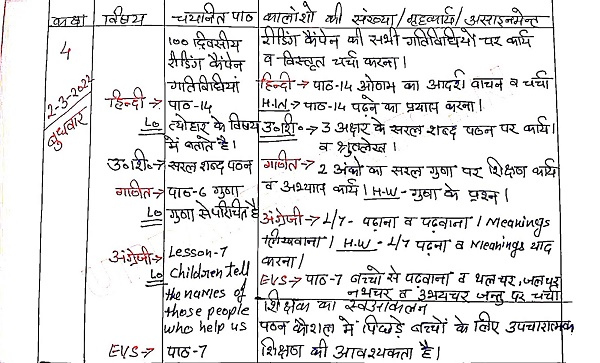 कक्षा विषय चयनित पाठ कालांशो की संख्या/गृहकार्य/असाइनमेन्ट
4
2-3-2022
बुधवार
100 दिवसीय
रीडिंग कैंपेन
गतिविधियां
हिन्दी → पाठ-14
Lo त्योहार के विषय
में बताते है।
उ॰शि॰→ सरल शब्द पठन
गणित → पाठ-6 गुणा
Lo गुणा से परिचित है
अंग्रेजी → Lesson-7
Lo children tell
the names of
those people
who help us
EVS → पाठ-7
रीडिंग कैंपेन की सभी गतिविधियों पर कार्य
व विस्तृत चर्चा करना।
हिन्दी → पाठ-14 ओणम का आदर्श वाचन व चर्चा
H.W → पाठ-14 पढ़ने का प्रयास करना।
उ॰शि॰ → 3 अक्षर के सरल शब्द पठन पर कार्य।
व श्रुतलेख।
गणित → 2 अंको का सरल गुणा पर शिक्षण कार्य
व अभ्यास कार्य। H.W - गुणा के प्रश्न।
अंग्रेजी → L/7 - पढ़ाना व पढ़वाना। Meanings
लिखवाना। H.W - L/7 पढ़ना व Meanings याद
करना।
EVS → पाठ-7 बच्चों से पढ़वाना व थलचर, जलचर
नभचर व उभयचर जन्तु पर चर्चा
शिक्षक का स्वआंकलन
पठन कौशल में पिछड़े बच्चों के लिए उपचारात्मक
शिक्षण की आवश्यकता है।